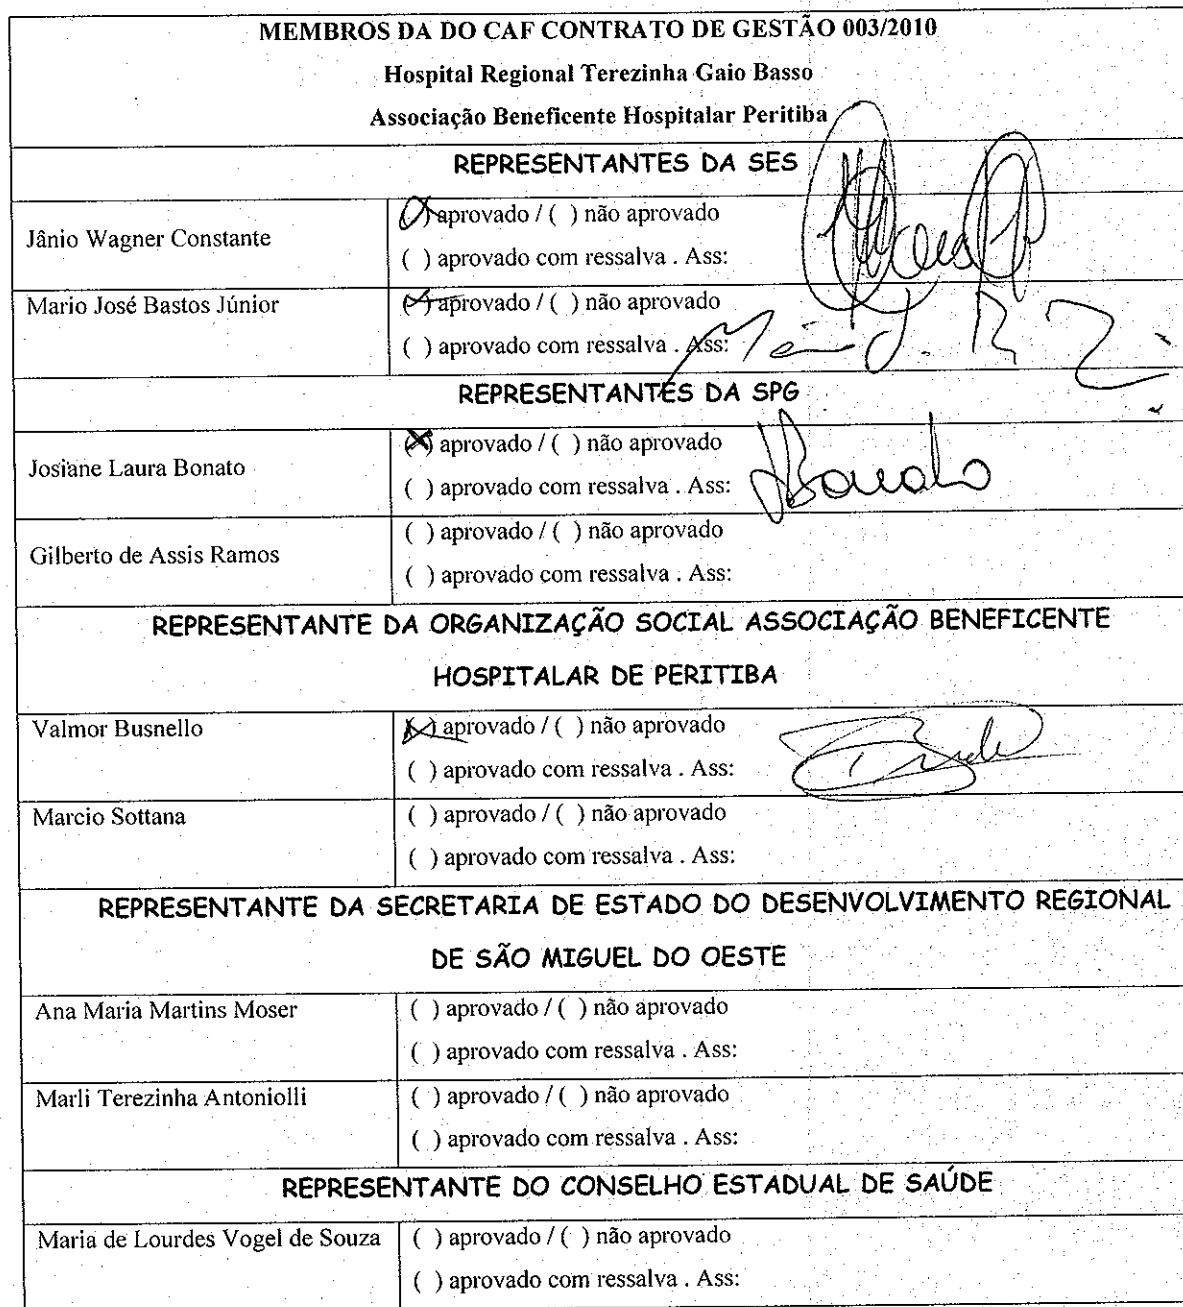 MEMBROS DA DO CAF CONTRATO DE GESTÃO 003/2010
Hospital Regional Terezinha Gaio Basso
Associação Beneficente Hospitalar Peritiba
REPRESENTANTES DA SES
Jânio Wagner Constante
(X) aprovado / ( ) não aprovado
( ) aprovado com ressalva . Ass:
Mario José Bastos Júnior
(X) aprovado / ( ) não aprovado
( ) aprovado com ressalva . Ass:
REPRESENTANTES DA SPG
Josiane Laura Bonato
(X) aprovado / ( ) não aprovado
( ) aprovado com ressalva . Ass: JBonato
Gilberto de Assis Ramos
( ) aprovado / ( ) não aprovado
( ) aprovado com ressalva . Ass:
REPRESENTANTE DA ORGANIZAÇÃO SOCIAL ASSOCIAÇÃO BENEFICENTE
HOSPITALAR DE PERITIBA
Valmor Busnello
(X) aprovado / ( ) não aprovado
( ) aprovado com ressalva . Ass:
Marcio Sottana
( ) aprovado / ( ) não aprovado
( ) aprovado com ressalva . Ass:
REPRESENTANTE DA SECRETARIA DE ESTADO DO DESENVOLVIMENTO REGIONAL
DE SÃO MIGUEL DO OESTE
Ana Maria Martins Moser
( ) aprovado / ( ) não aprovado
( ) aprovado com ressalva . Ass:
Marli Terezinha Antoniolli
( ) aprovado / ( ) não aprovado
( ) aprovado com ressalva . Ass:
REPRESENTANTE DO CONSELHO ESTADUAL DE SAÚDE
Maria de Lourdes Vogel de Souza
( ) aprovado / ( ) não aprovado
( ) aprovado com ressalva . Ass: